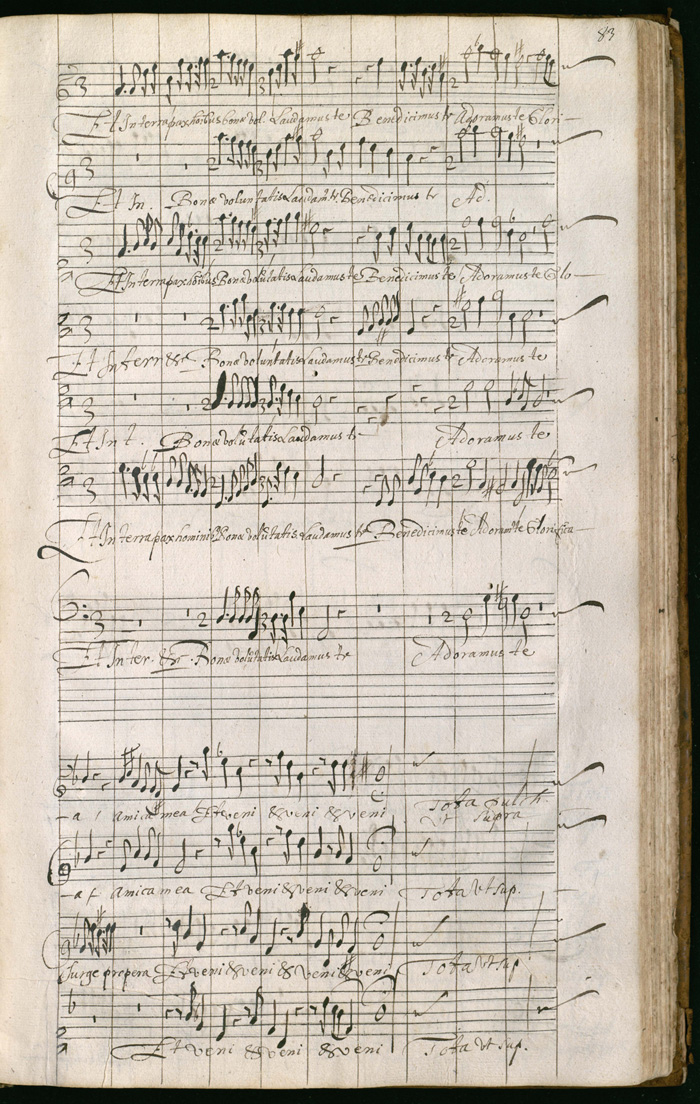 83
Et In terra pax hoibus bonæ vol. Laudamus te Benedicimus te Adoramus te Glori-
Et In. Bonæ voluntatis Laudam. te Benedicimus te Ad.
Et In terra pax hoibus Bonæ volutatis Laudamus te Benedicimus te Adoramus te Glo-
Et In terr &c Bonæ voluntatis Laudamus te Benedicimus te Adoramus te
Et In t. Bonæ volutatis Laudamus te Adoramus te
Et In terra pax hominib Bonæ volutatis Laudamus te Benedicimus te Adoram te Glorifica
Et In ter. &c. Bonæ volutatis Laudamus te Adoramus te
-a Amica mea Et veni & veni & veni Tota pulch.
vt supra
-a Amica mea Et veni & veni & veni Tota vt sup.
Surge propera Et veni & veni & veni & veni Tota vt sup
Et veni & veni & veni Tota vt sup.